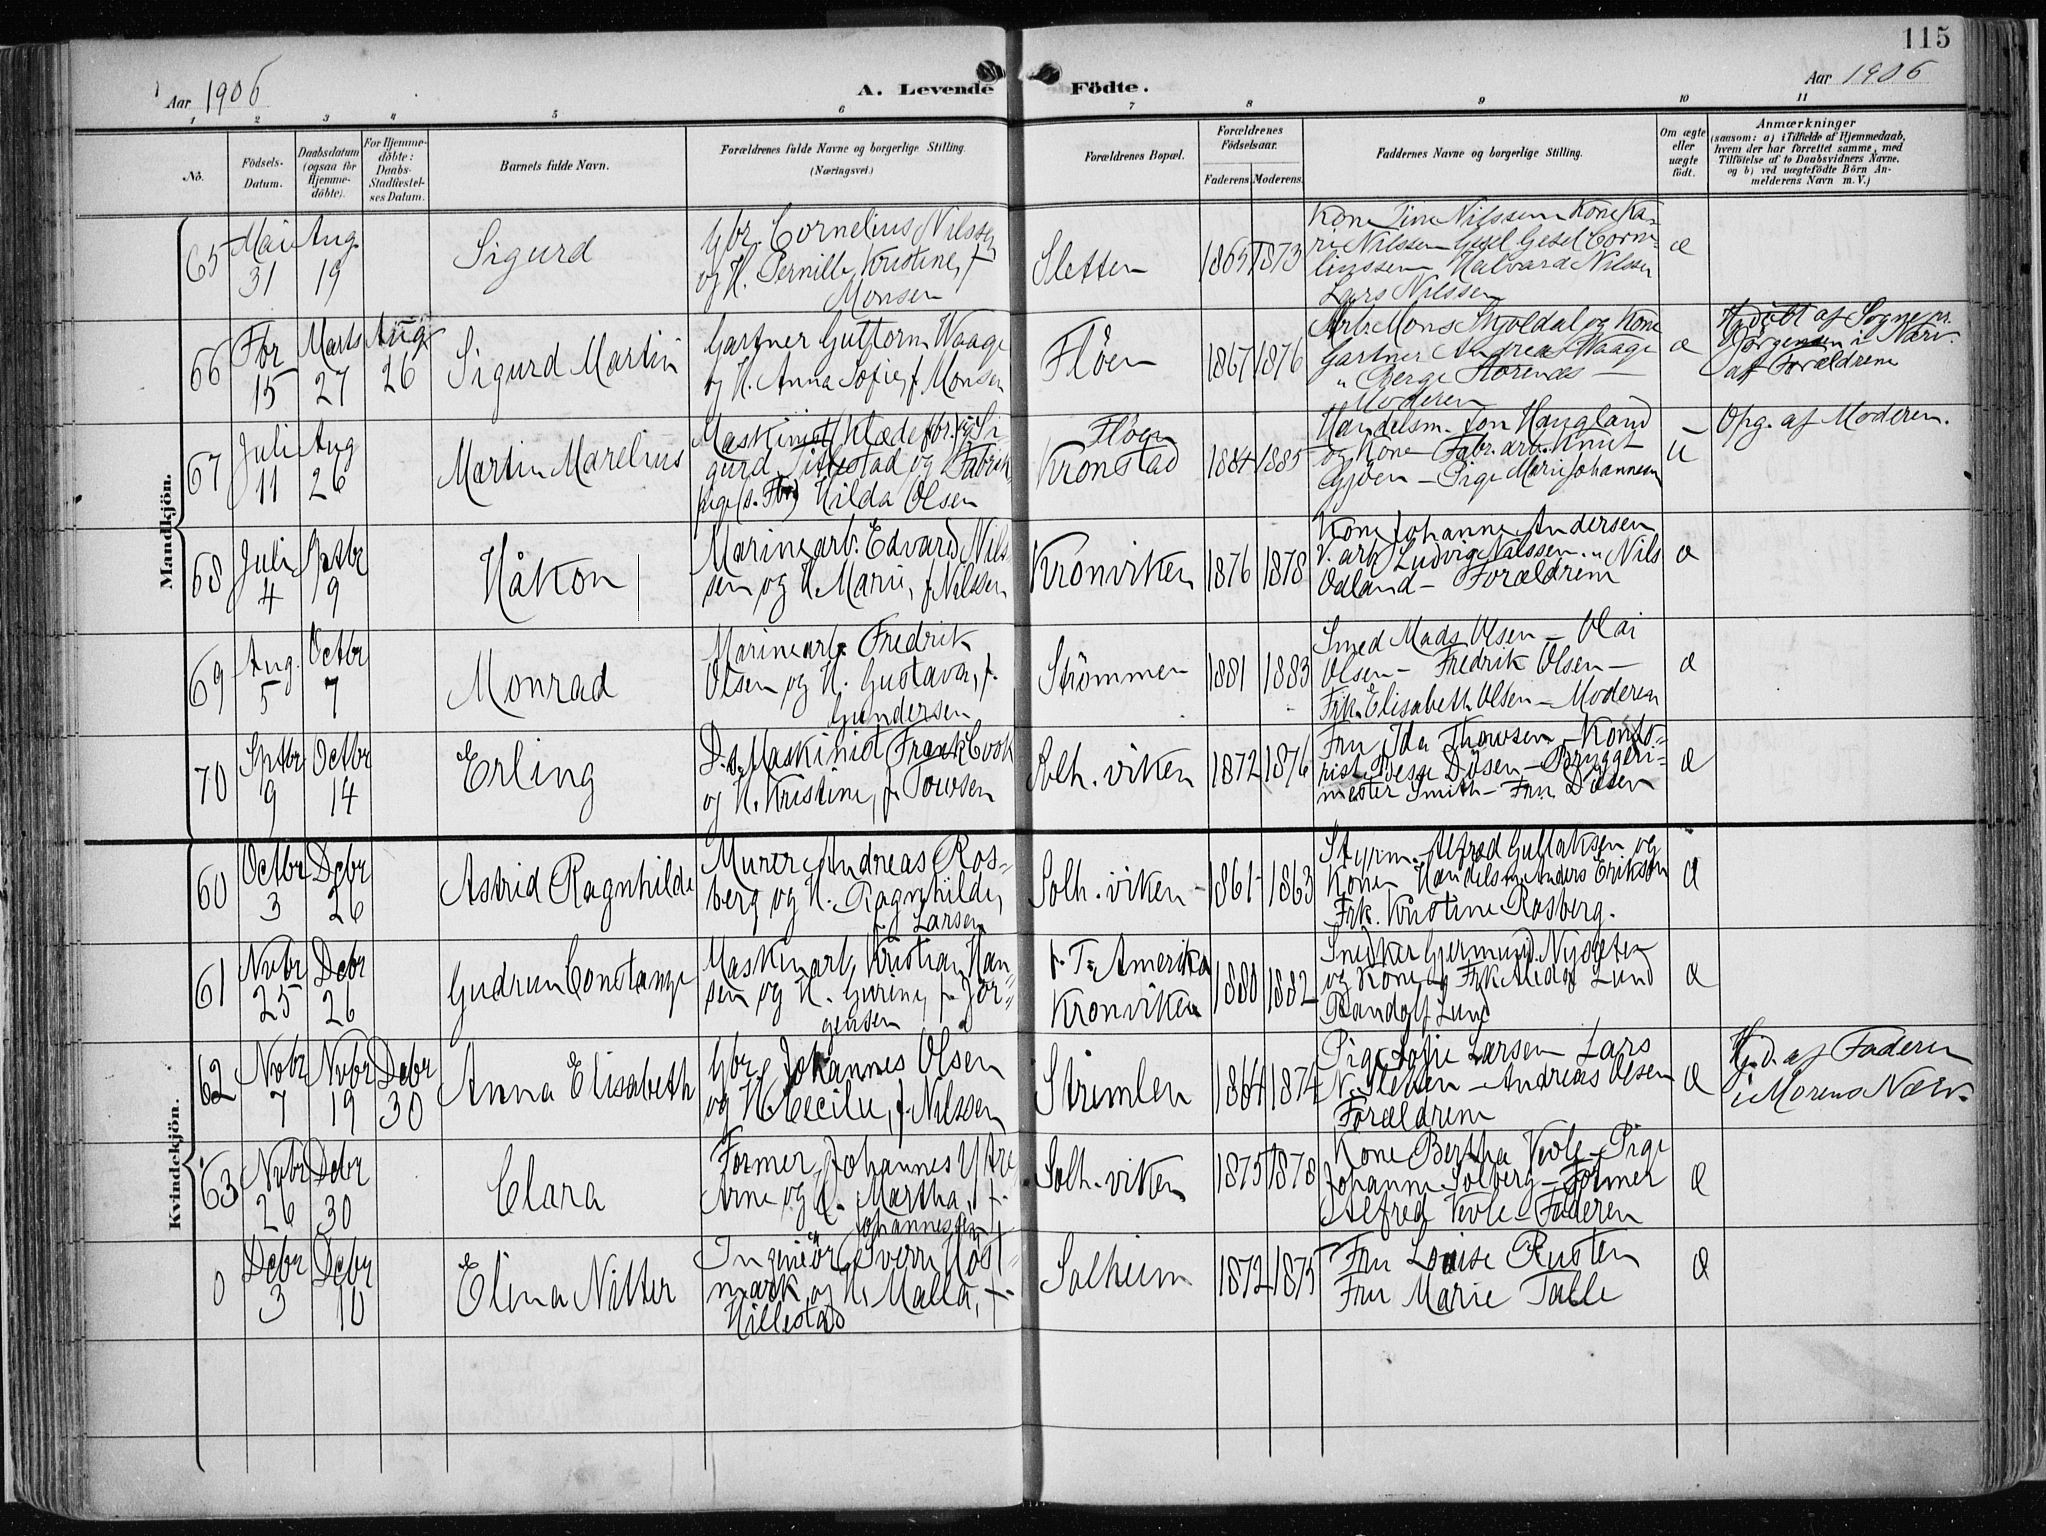 115
Aar 1906
A. Levende Födte.
Aar 1906
1 2 3 4 5 6 7 8 9 10 11
No.
Födsels-Datum.
Daabsdatum (ogsaa for Hjemme-döbte).
For Hjemme-döbte: Daabs-Stadfæstel-ses Datum.
Barnets fulde Navn.
Forældrenes fulde Navne og borgerlige Stilling. (Næringsvei.)
Forældrenes Bopæl.
Forældrenes Födselsaar.
Faderens. Moderens.
Faddernes Navne og borgerlige Stilling.
Om ægte eller uægte födt.
Anmærkninger
(saasom: a) i Tilfælde af Hjemmedaab,
hvem der har forrettet samme, med
Tilföielse af to Daabsvidners Navne.
og b) ved uægtefödte Börn An-
melderens Navn m. V.)
Mandkjön.
65 Mai 31 Aug. 19
Sigurd
Gbr. Cornelius Nilssen
og H. Pernille Kristine, f.
Monsen
Sletten
1865 1873
Kone Tine Nilssen Kone Ka-
ri Nilssen Gesel Corne-
liussen Halvard Nilssen
Lars Nilssen
æ
66 Fbr 15 Marts 27 Aug 26
Sigurd Martin
Gartner Guttorm Waage
og H. Anna Sofie, f. Monsen
Fløen
1867 1876
Arb. Mons Skjoldal og Kone
Gartner Andreas Waage
" Berge Storenes —
Moderen
æ
Hjdøbt af Sognepr.
Jørgensen i Nærv.
af Forældrene
67 Juli 11 Aug 26
Martin Marelius
Maskinist Si-
gurd Titlestad og Fabrik
pige Hilda Olsen
Fløen
Kronstad
1884 1885
Handelsm. Jon Haugland
og Kone — Fabr. arb. Knut
Gjøen — Pige Marie Johannesen
u
Opg. af Moderen.
68 Juli 4 Sptbr 9
Håkon
Marinearb. Edvard Nils-
sen og H. Marie, f. Nilssen
Kronviken
1876 1878
Kone Johanne Andersen
V. arb. Ludvig Nilssen — Nils
Odland — Forældrene
æ
69 Aug. 5 Octbr 7
Monrad
Marinearb. Fredrik
Olsen og H. Gustava, f.
Gundersen
Strømmen
1881 1883
Smed Mads Olsen — Olai
Olsen — Fredrik Olsen —
Frk. Elisabeth Olsen — Moderen
æ
70 Sptbr 9 Octbr 14
Erling
D.s. Maskinist Frank Cook
og H. Kristine, f. Towsen
Solh. viken
1872 1876
Fru Ida Thowsen — Konto-
rist Døsen — Bryggeri-
mester Smith — Fru Døsen
æ
Kvindekjön.
60 Octbr 3 Debr 26
Astrid Ragnhilde
Murer Andreas Ros-
berg og H. Ragnhilde,
f. Larsen
Solh. viken
1861 1863
Styrm. Alfred Gullaksen og
Kone Handelsm. Anders Erikson
Frk. Kristine Rosberg.
æ
61 Nvbr 25 Debr 26
Gudrun Constanse
Maskinarb. Kristian Han-
sen og H. Gurine, f. Jør-
gensen
f. T. Amerika
Kronviken
1880 1882
Snedker Gjermund Nygaten
og Kone, Frk Alida Lund
Randolf Lund
æ
62 Nvbr 7 Nvbr 19 Debr 30
Anna Elisabeth
Gbr. Johannes Olsen
og H. Cecilie, f. Nilssen
Strimlen
1864 1874
Pige Sofie Larsen Lars
N. Sletten — Andreas Olsen
Forældrene
æ
Hjd. af Faderen
i Morens Nærv.
63 Nvbr 26 Debr 30
Clara
Former Johannes Ytre
Arne og H. Martha, f.
Johannessen
Solh. viken
1875 1878
Kone Bertha Vevle — Pige
Johanne Solberg — Former
Alfred Vevle — Faderen
æ
0 Debr 3 Debr 10
Elina Nitter
Ingeniør Sverre Høst-
mark og H. Malla, f.
Hillestad
Solheim
1872 1875
Fru Louise Rusten
Fru Marie Talle
æ